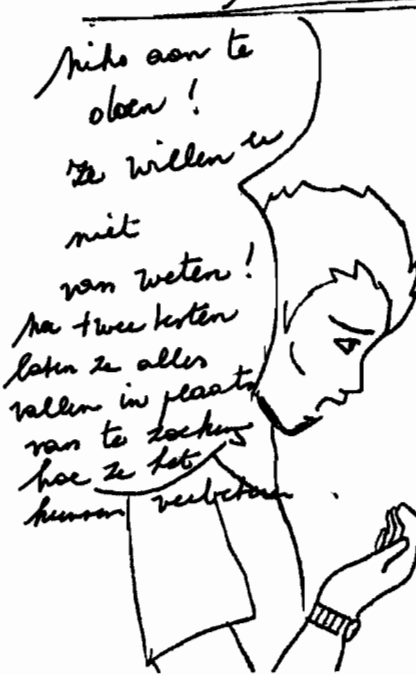 niks aan te
doen !
ze willen er
niet
van weten !
na twee testen
laten ze alles
vallen in plaats
van te zoeken
hoe ze het
kunnen verbeteren.